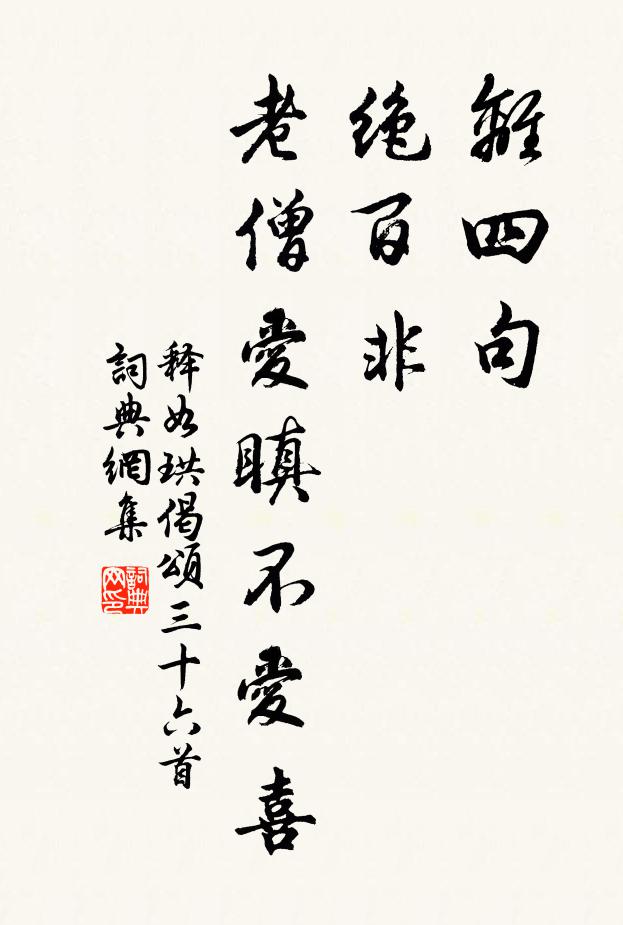 離四句
絶百非
老僧愛瞋不愛喜
释如珙偈頌三十六首
詞典網集
詞典網印